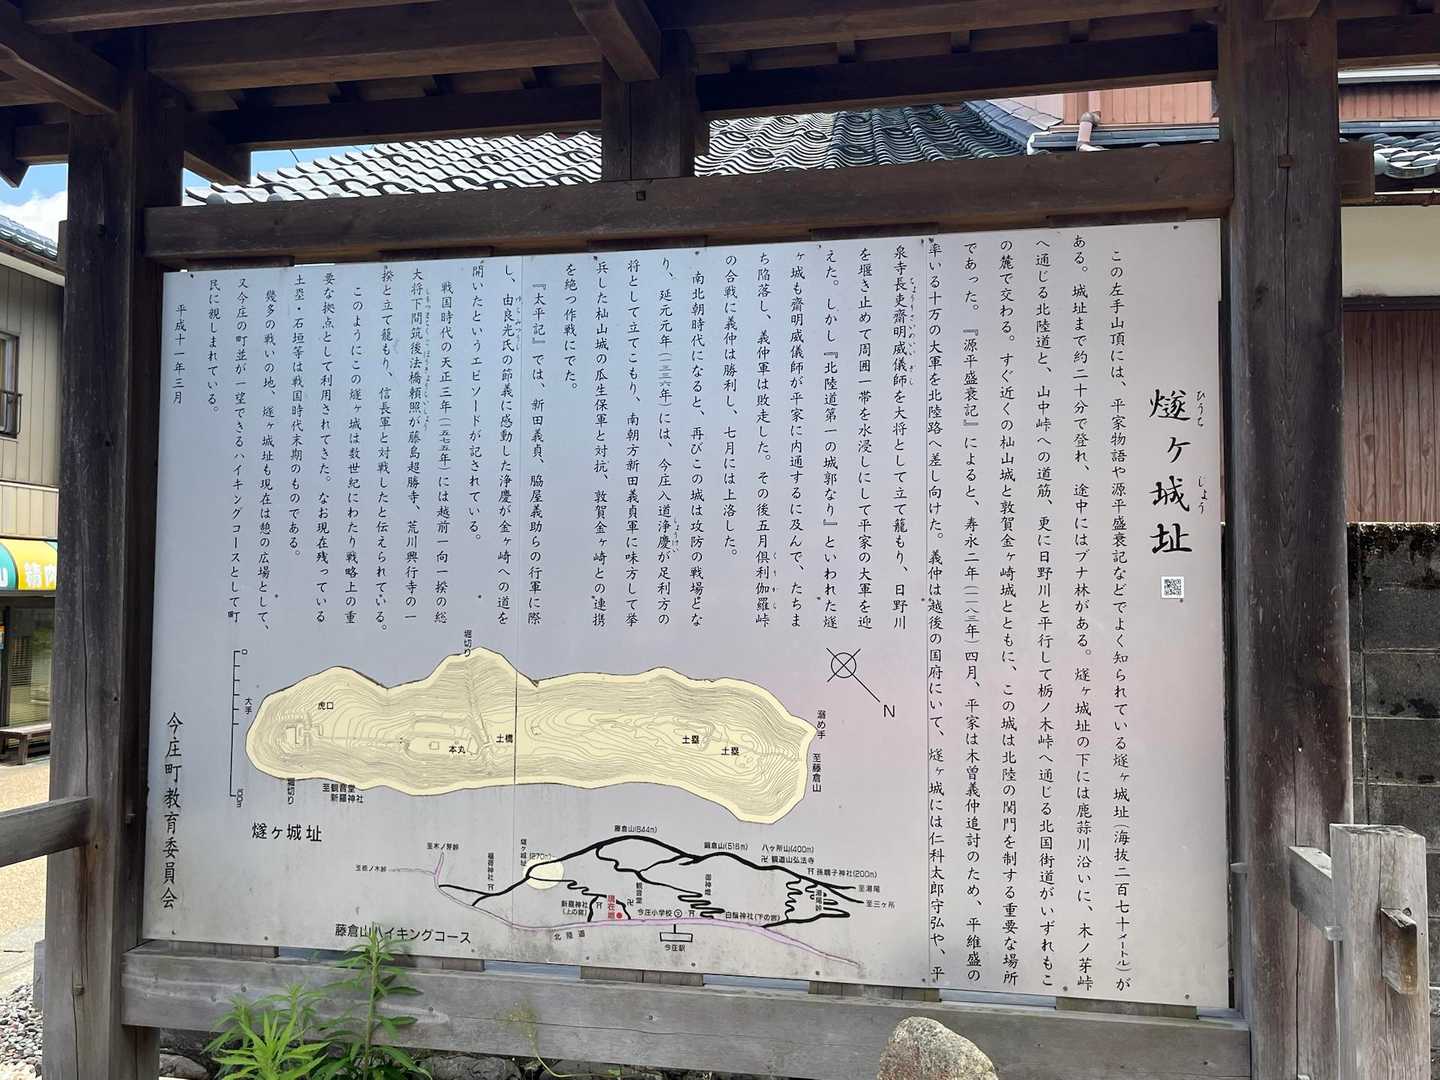 燧ヶ城址
ひうち
じょう
この左手山頂には、平家物語や源平盛衰記などでよく知られている燧ヶ城址(海抜二百七十メートル)が
ある。城址まで約二十分で登れ、途中にはブナ林がある。燧ヶ城址の下には鹿蒜川沿いに、木ノ芽峠
へ通じる北陸道と、山中峠への道筋、更に日野川と平行して栃ノ木峠へ通じる北国街道がいずれもこ
の麓で交わる。すぐ近くの杣山城と敦賀金ヶ崎城とともに、この城は北陸の関門を制する重要な場所
であった。『源平盛衰記』によると、寿永二年(一一八三年)四月、平家は木曽義仲追討のため、平維盛の
率いる十万の大軍を北陸路へ差し向けた。義仲は越後の国府にいて、燧ヶ城には仁科太郎守弘や、平
泉寺長吏齋明威儀師を大将として立て籠もり、日野川
ちょうりさいめいいぎし
を堰き止めて周囲一帯を水浸しにして平家の大軍を迎
えた。しかし『北陸道第一の城郭なり』といわれた燧
ヶ城も齋明威儀師が平家に内通するに及んで、たちま
ち陥落し、義仲軍は敗走した。その後五月倶利伽羅峠
くりから
の合戦に義仲は勝利し、七月には上洛した。
南北朝時代になると、再びこの城は攻防の戦場とな
り、延元元年(一三三六年)には、今庄入道浄慶が足利方の
じょうけい
将として立てこもり、南朝方新田義貞軍に味方して挙
兵した杣山城の瓜生保軍と対抗、敦賀金ヶ崎との連携
を絶つ作戦にでた。
『太平記』では、新田義貞、脇屋義助らの行軍に際
し、由良光氏の節義に感動した浄慶が金ヶ崎への道を
開いたというエピソードが記されている。
戦国時代の天正三年(一五七五年)には越前一向一揆の総
大将下間筑後法橋頼照が藤島超勝寺、荒川興行寺の一
揆と立て籠もり、信長軍と対戦したと伝えられている。
このようにこの燧ヶ城は数世紀にわたり戦略上の重
要な拠点として利用されてきた。なお現在残っている
土塁・石垣等は戦国時代末期のものである。
幾多の戦いの地、燧ヶ城址も現在は憩の広場として、
又今庄の町並が一望できるハイキングコースとして町
民に親しまれている。
平成十一年三月
今庄町教育委員会
0
100m
大手
虎口
堀切り
堀切り
至観音堂
新羅神社
本丸
土橋
土塁
土塁
搦め手
至藤倉山
N
燧ヶ城址
至木ノ芽峠
至栃ノ木峠
稲荷神社
燧ヶ城址(270m)
藤倉山(644m)
鍋倉山(516m)
八ヶ所山(400m)
観道山弘法寺
孫嫡子神社(200m)
至湯尾
至三ヶ所
湯尾峠
御神燈
観音堂
新羅神社
(上の宮)
現在地
今庄小学校
白鬚神社(下の宮)
北陸道
今庄駅
藤倉山ハイキングコース
精肉